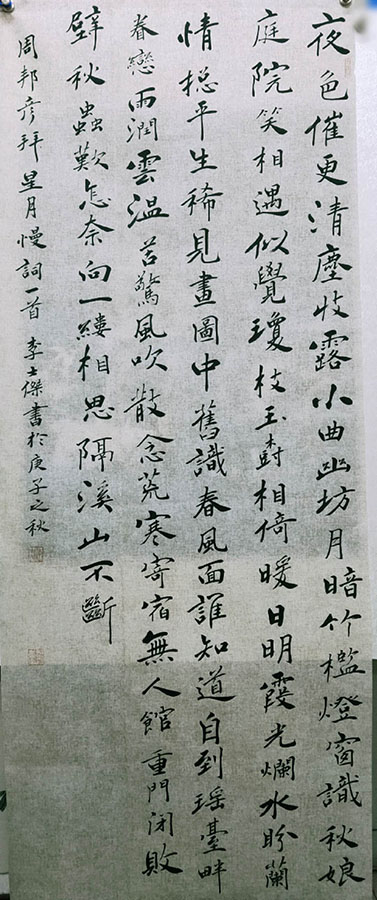 夜色催更清塵收露小曲幽坊月暗竹檻燈窗識秋娘
庭院笑相遇似覺瓊枝玉樹相倚暖日明霞光爛水盼蘭
情總平生稀見畫圖中舊識春風面誰知道自到瑶臺畔
眷戀雨潤雲温苦驚風吹散念荒寒寄宿無人館重門閉敗
壁秋蟲歎怎奈向一縷相思隔溪山不斷
周邦彦拜星月慢詞一首 李士傑書於庚子之秋